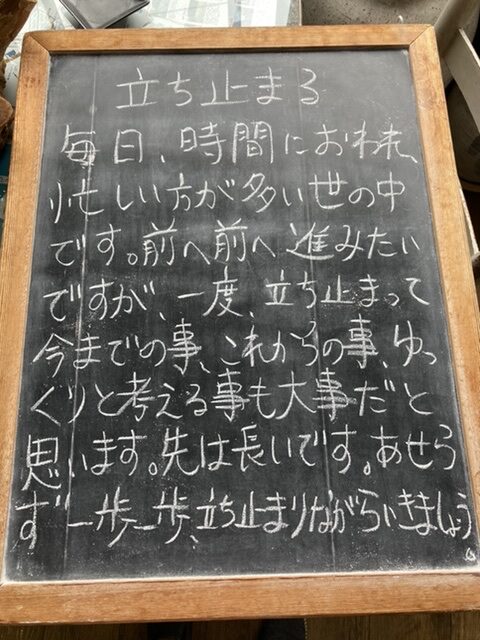 立ち止まる
毎日、時間におわれ、
忙しい方が多い世の中
です。前へ前へ進みたい
ですが、一度、立ち止まって
今までの事、これからの事、ゆっ
くりと考える事も大事だと
思います。先は長いです。あせら
ず一歩一歩、立ち止まりながらいきましょう。